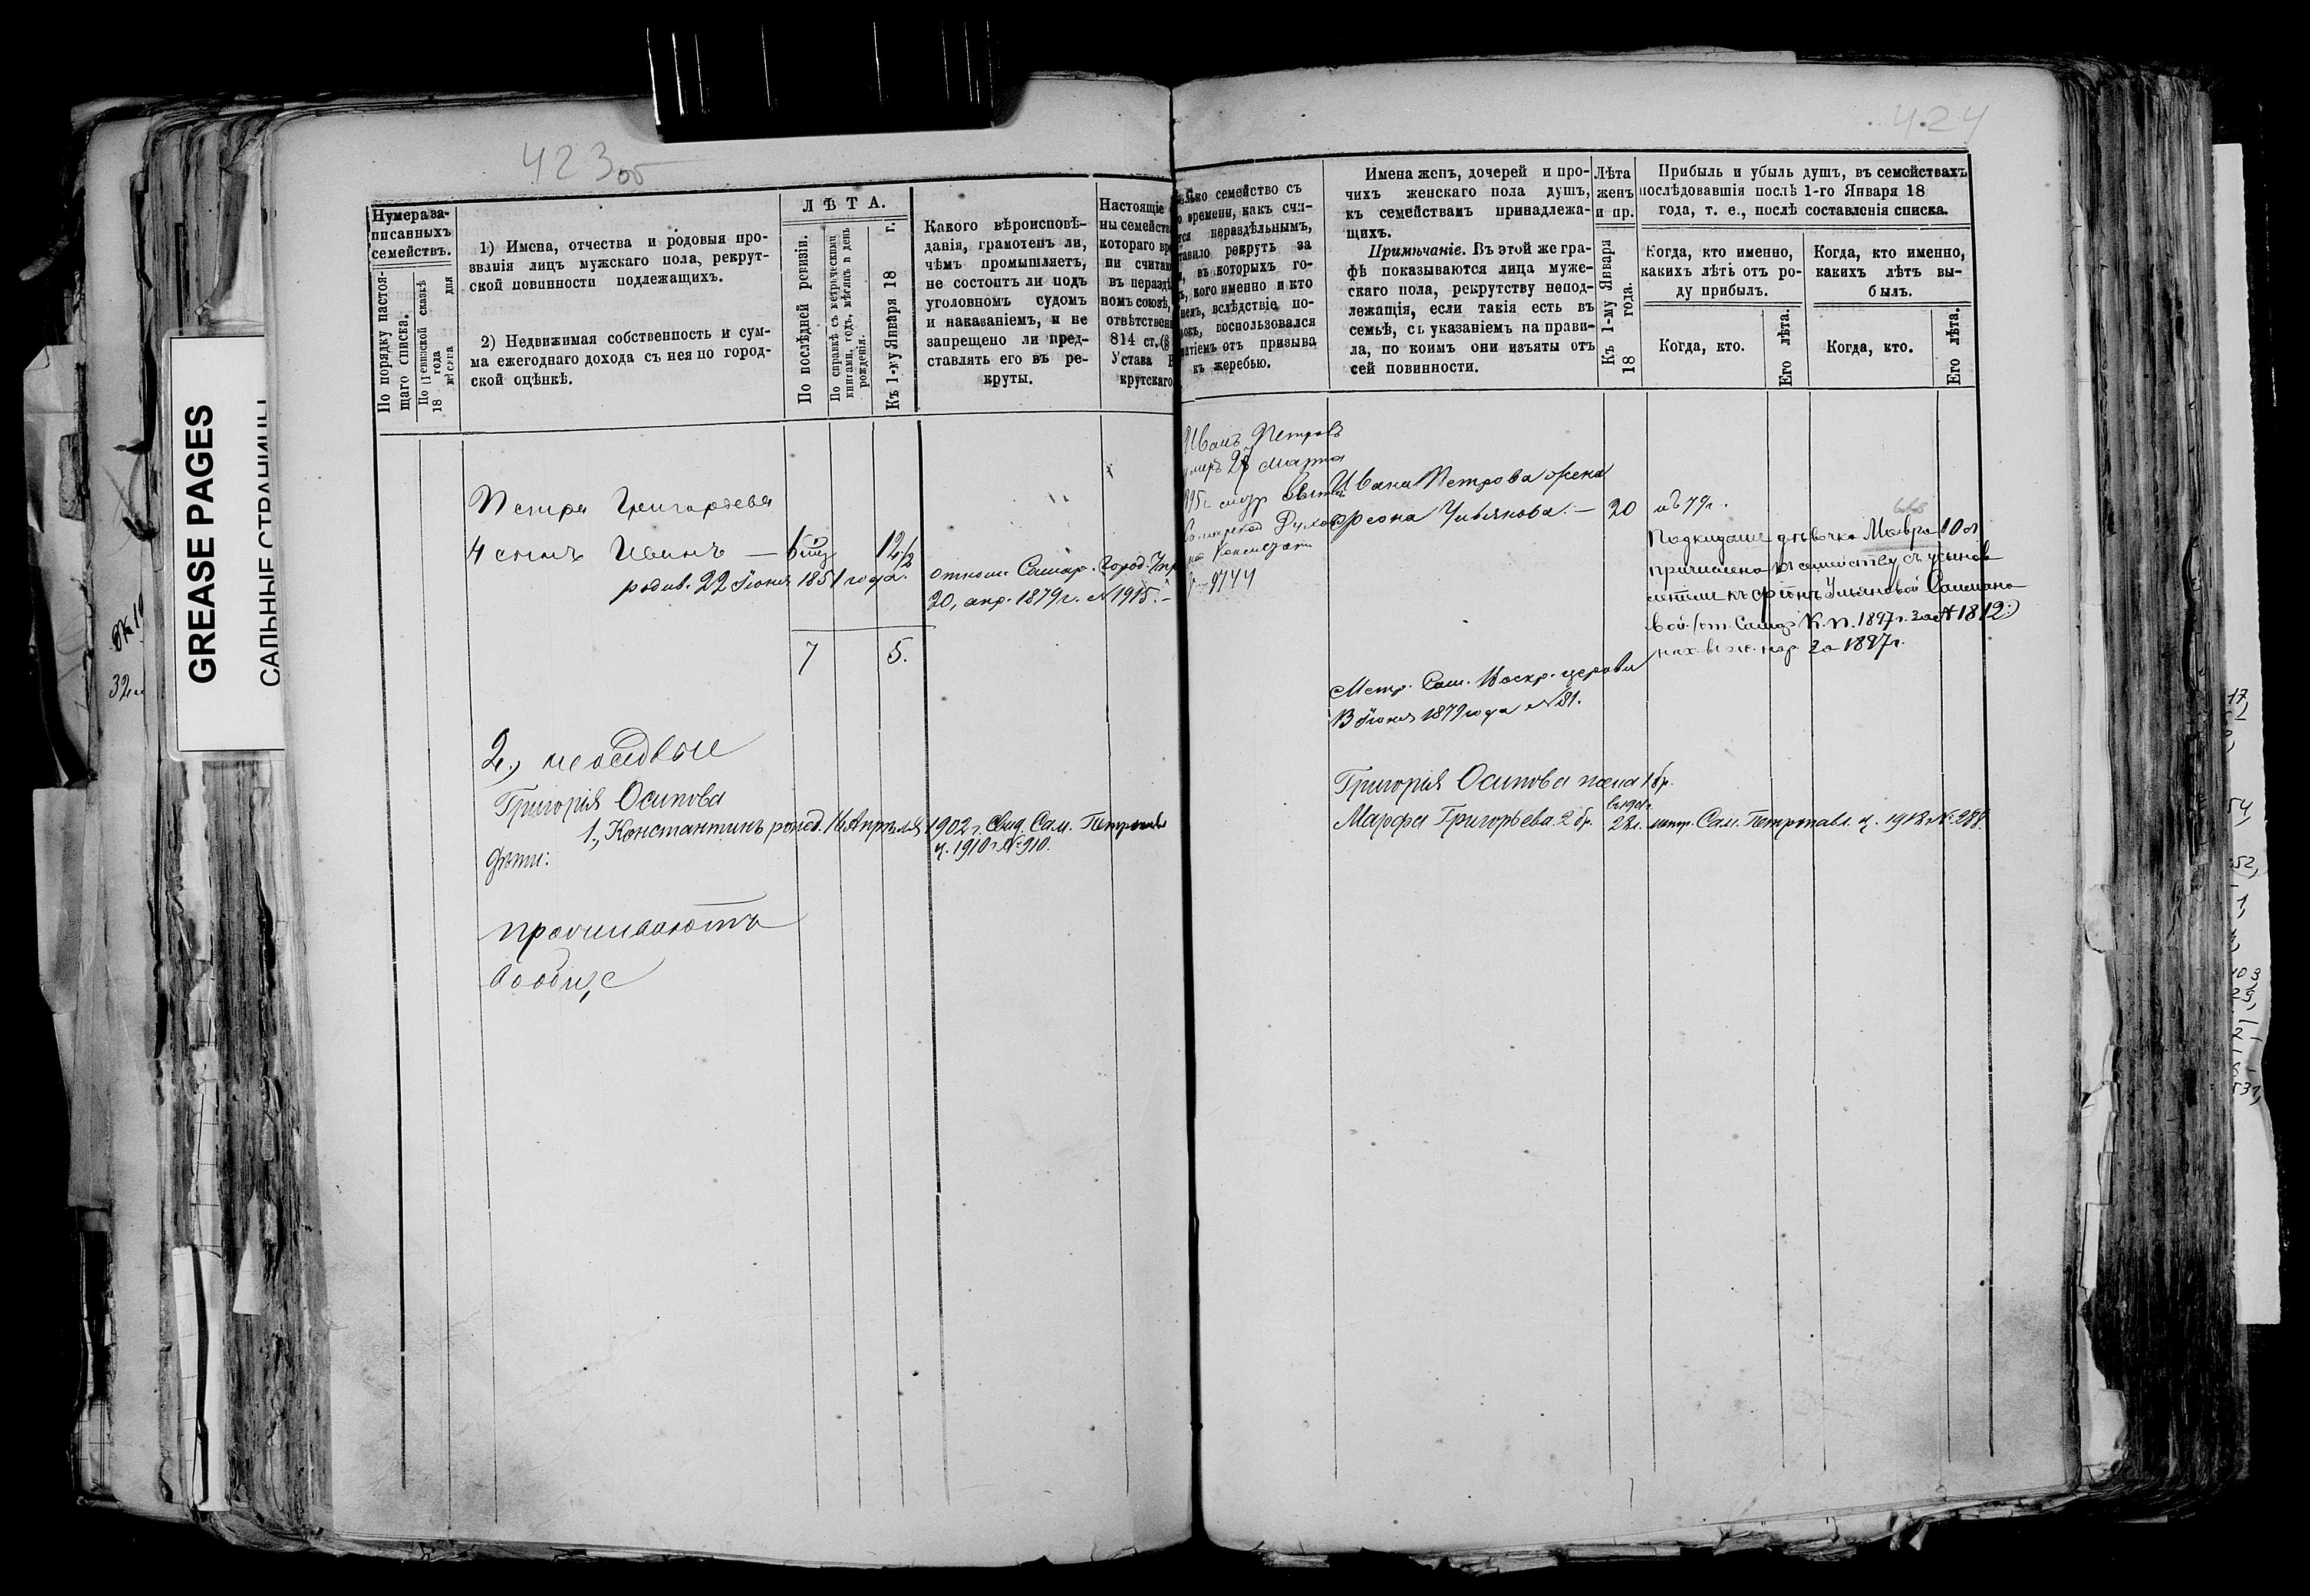 423 об
424
GREASE PAGES
САЛЬНЫЕ СТРАНИЦЫ
Нумера за-
писанныхъ
семействъ.
По порядку настоя-
щаго списка.
По ревизской сказкѣ
18 года
мѣсяца дня
1) Имена, отчества и родовыя про-
званія лицъ мужскаго пола, рекрут-
ской повинности подлежащихъ.
2) Недвижимая собственность и сум-
ма ежегоднаго дохода съ нея по город-
ской оцѣнкѣ.
ЛѢТА.
По послѣдней ревизіи.
По справкѣ съ метрическими
книгами, годъ, мѣсяцъ и день
рожденія.
Къ 1-му Января 18 г.
Какого вѣроисповѣ-
данія, грамотенъ ли,
чѣмъ промышляетъ,
не состоитъ ли подъ
уголовномъ судомъ
и наказаніемъ, и не
запрещено ли пред-
ставлять его въ ре-
круты.
Настоящіе
ны семейств
котораго вре
ни считаю
въ нераздѣ
номъ союзѣ,
отвѣтствен
814 ст. (§
Устава Р
крутскаго
Петра Григорьева
4 сынъ Иванъ — 6 мц 12 1/2
родив. 22 Іюня 1851 года.
отнош. Самар. Город. Упр
20, апр. 1879 г. №1915. —
7 5.
2., посадвые
Григорія Осипова
1., Константинъ рожд. 16 Апрѣля 1902 г. Свид. Сам. Петропав
ц. 1910 г. № 910.
дѣти:
проживаютъ
вообще
лько семейство съ
о времени, какъ счи-
тся нераздѣльнымъ,
тавило рекрутъ за
, въ которыхъ го-
ъ, кого именно и кто
немъ, вслѣдствіе по-
окъ, воспользовался
ятіемъ отъ призыва
къ жеребью.
Имена женъ, дочерей и про-
чихъ женскаго пола душъ,
къ семействамъ принадлежа-
щихъ.
Примѣчаніе. Въ этой же гра-
фѣ показываются лица муже-
скаго пола, рекрутству непод-
лежащія, если такія есть въ
семьѣ, съ указаніемъ на прави-
ла, по коимъ они изъяты отъ
сей повинности.
Лѣта
женъ
и пр.
Къ 1-му Января
18 года.
Прибыль и убыль душъ, въ семействахъ
послѣдовавшія послѣ 1-го Января 18
года, т. е., послѣ составленія списка.
Когда, кто именно,
какихъ лѣтъ отъ ро-
ду прибылъ.
Когда, кто именно,
какихъ лѣтъ вы-
былъ.
Когда, кто.
Его лѣта.
Когда, кто.
Его лѣта.
Иванъ Петровъ
умеръ 27 Марта
Самарской Духов
ной Консистор
9744
Ивана Петрова жена
Феона Ульянова. — 20 въ 79 г.
Подкидыш дѣвочка Мавра 10 л
причислена къ семейству съ усынов
леніем къ Феонѣ Ульяновой Салмано
вой. (от. Самар К. П. 1897 г. за №1812)
за 1897 г.
Метр. Сам. Воскр. церкви
13 Іюня 1879 года №81.
Григорія Осипова жена 1 бр.
Марфа Григорьева 2 бр. 28 л. метр. Сам. Петропавл. ц. 1918 г. № 288.